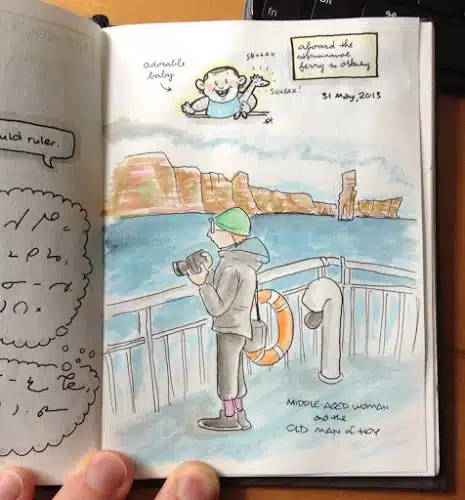 uld ruler.
adorable
baby
SQUEAK
SQUEAK!
aboard the
ferry to Orkney
31 May, 2013
MIDDLE-AGED WOMAN
and the
OLD MAN of HOY